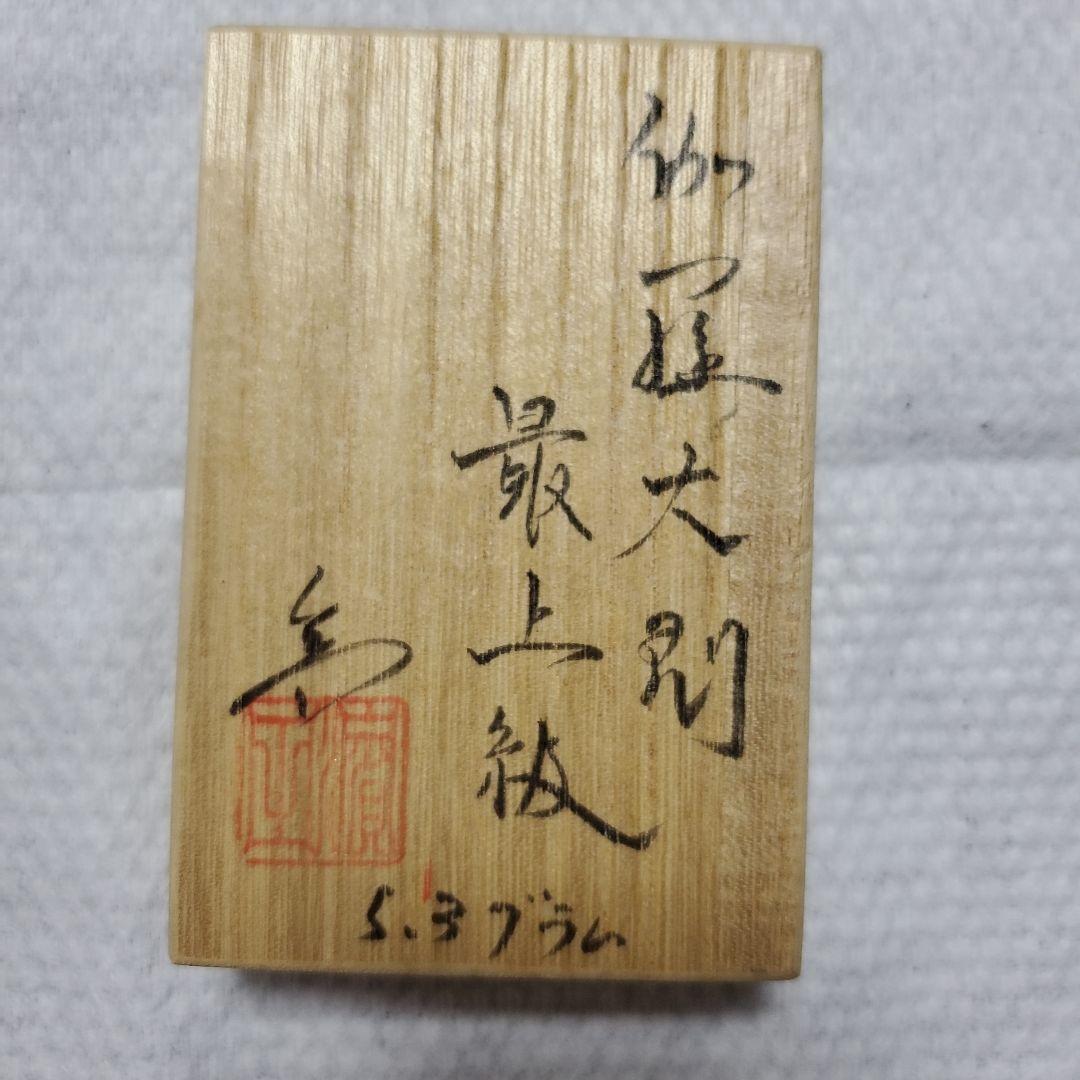 伽羅大
最上級
5.3グラム